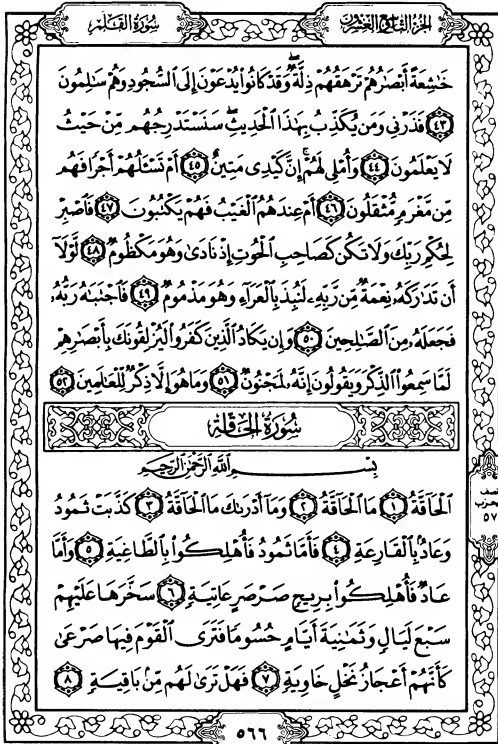 سُورَةُ القَلَمِ
الجُزءُ التَّاسِعُ وَالعِشْرُونَ
خَٰشِعَةً أَبْصَٰرُهُمْ تَرْهَقُهُمْ ذِلَّةٌ ۖ وَقَدْ كَانُوا۟ يُدْعَوْنَ إِلَى ٱلسُّجُودِ وَهُمْ سَٰلِمُونَ
٤٣ فَذَرْنِى وَمَن يُكَذِّبُ بِهَٰذَا ٱلْحَدِيثِ ۖ سَنَسْتَدْرِجُهُم مِّنْ حَيْثُ
لَا يَعْلَمُونَ ٤٤ وَأُمْلِى لَهُمْ ۚ إِنَّ كَيْدِى مَتِينٌ ٤٥ أَمْ تَسْـَٔلُهُمْ أَجْرًا فَهُم
مِّن مَّغْرَمٍ مُّثْقَلُونَ ٤٦ أَمْ عِندَهُمُ ٱلْغَيْبُ فَهُمْ يَكْتُبُونَ ٤٧ فَٱصْبِرْ
لِحُكْمِ رَبِّكَ وَلَا تَكُن كَصَاحِبِ ٱلْحُوتِ إِذْ نَادَىٰ وَهُوَ مَكْظُومٌ ٤٨ لَّوْلَآ
أَن تَدَٰرَكَهُۥ نِعْمَةٌ مِّن رَّبِّهِۦ لَنُبِذَ بِٱلْعَرَآءِ وَهُوَ مَذْمُومٌ ٤٩ فَٱجْتَبَٰهُ رَبُّهُۥ
فَجَعَلَهُۥ مِنَ ٱلصَّٰلِحِينَ ٥٠ وَإِن يَكَادُ ٱلَّذِينَ كَفَرُوا۟ لَيُزْلِقُونَكَ بِأَبْصَٰرِهِمْ
لَمَّا سَمِعُوا۟ ٱلذِّكْرَ وَيَقُولُونَ إِنَّهُۥ لَمَجْنُونٌ ٥١ وَمَا هُوَ إِلَّا ذِكْرٌ لِّلْعَٰلَمِينَ ٥٢
سُورَةُ الحَاقَّةِ
بِسْمِ ٱللَّهِ ٱلرَّحْمَٰنِ ٱلرَّحِيمِ
ٱلْحَآقَّةُ ١ مَا ٱلْحَآقَّةُ ٢ وَمَآ أَدْرَىٰكَ مَا ٱلْحَآقَّةُ ٣ كَذَّبَتْ ثَمُودُ
وَعَادٌۢ بِٱلْقَارِعَةِ ٤ فَأَمَّا ثَمُودُ فَأُهْلِكُوا۟ بِٱلطَّاغِيَةِ ٥ وَأَمَّا
عَادٌ فَأُهْلِكُوا۟ بِرِيحٍ صَرْصَرٍ عَاتِيَةٍ ٦ سَخَّرَهَا عَلَيْهِمْ
سَبْعَ لَيَالٍ وَثَمَٰنِيَةَ أَيَّامٍ حُسُومًا فَتَرَى ٱلْقَوْمَ فِيهَا صَرْعَىٰ
كَأَنَّهُمْ أَعْجَازُ نَخْلٍ خَاوِيَةٍ ٧ فَهَلْ تَرَىٰ لَهُم مِّنۢ بَاقِيَةٍ ٨
نصف
الحزب
٥٧
٥٦٦